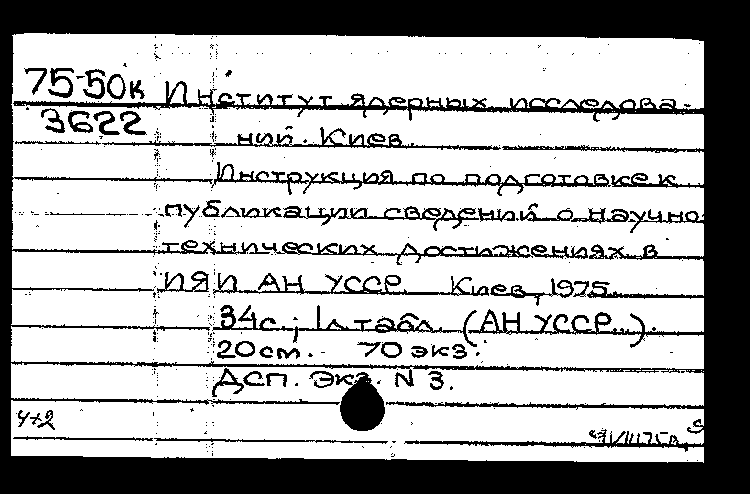 75-50к Институт ядерных исследова-
3622
ний. Киев.
Инструкция по подготовке к
публикации сведений о научно-
технических достижениях в
ИЯИ АН УССР. Киев, 1975.
34с.; 1л.табл. (АН УССР...).
20см. 70 экз.
ДСП. Экз. N 3.
4+2